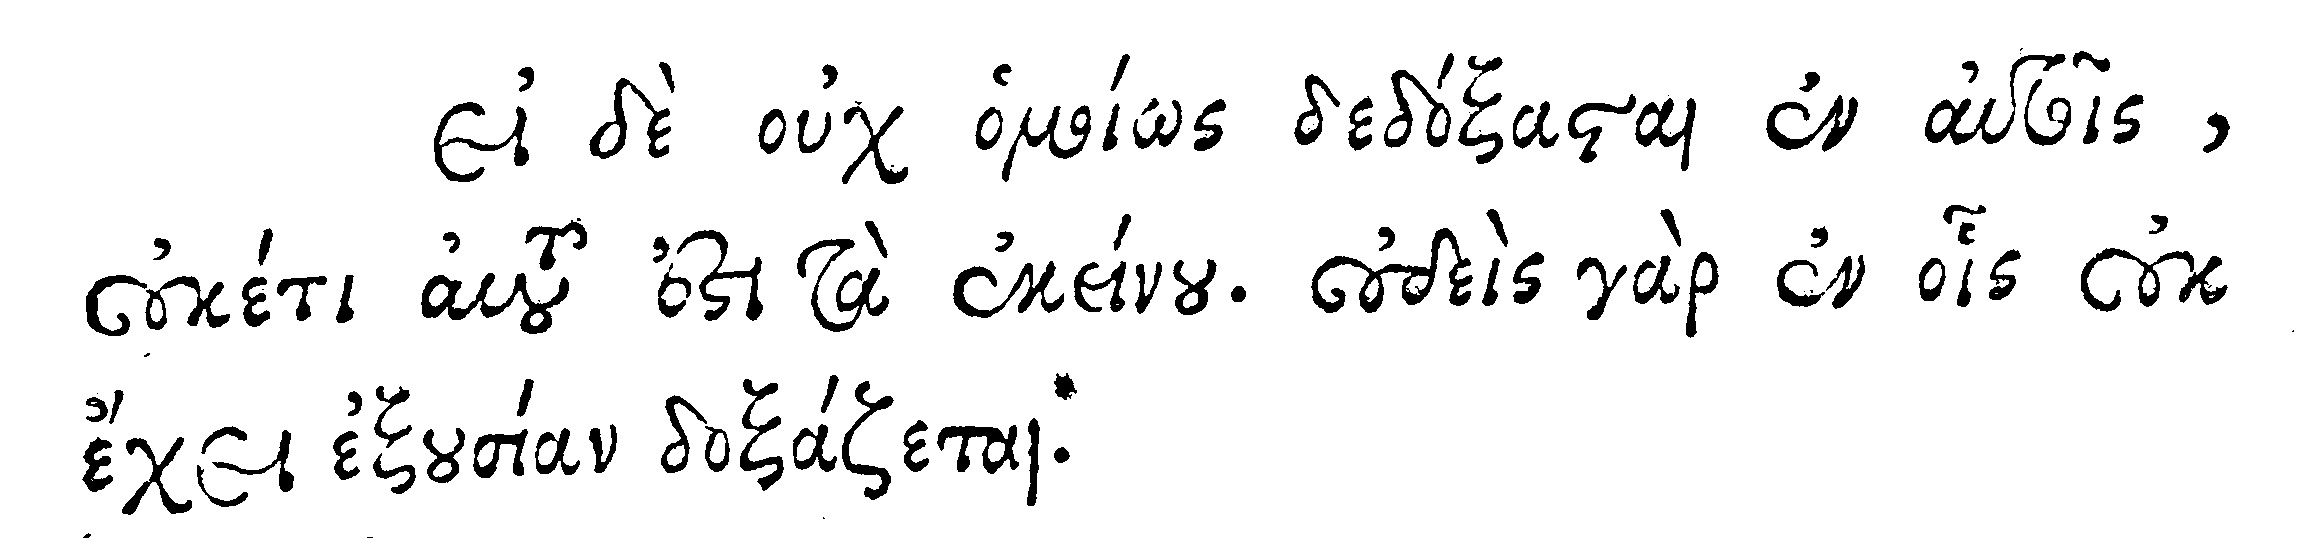 εἰ δὲ οὐχ ὁμοίως δεδόξασται ἐν αὐτοῖς,
οὐκέτι αὐτοῦ ἐστι τὰ ἐκείνου. οὐδεὶς γὰρ ἐν οἷς οὐκ
ἔχει ἐξουσίαν δοξάζεται.